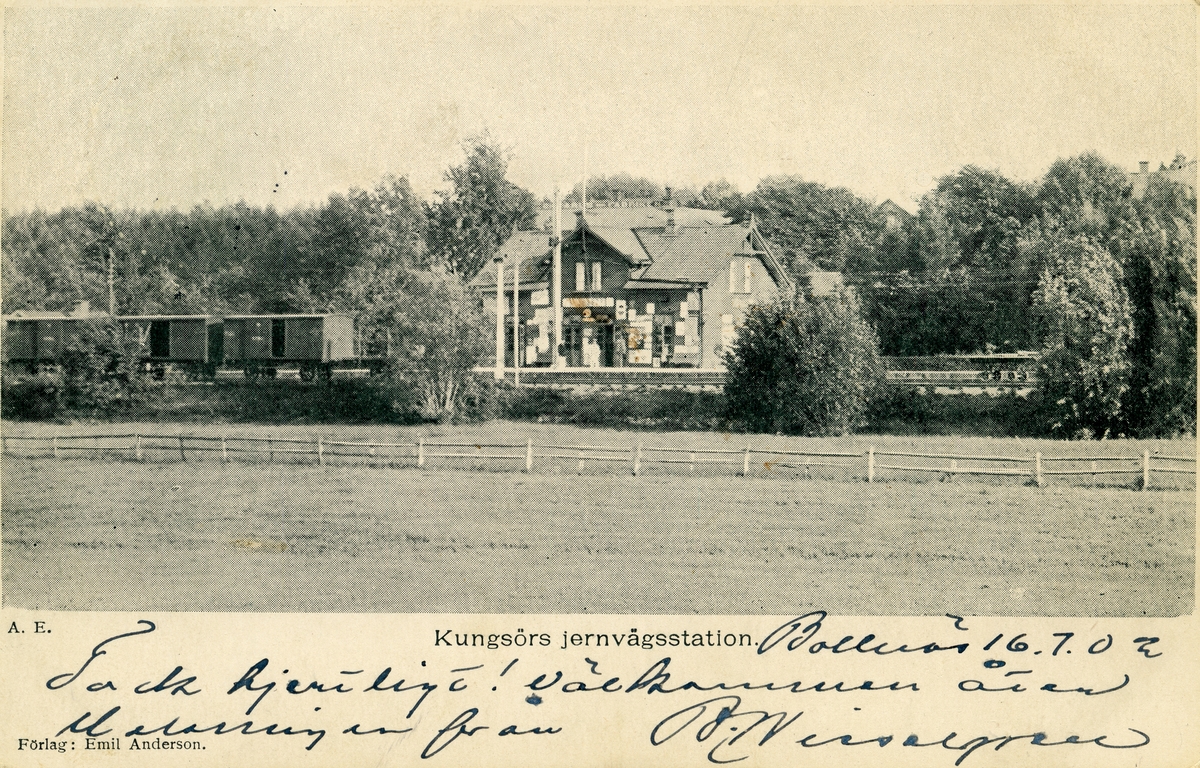 A. E.
Kungsörs jernvägsstation. Bollnäs 16.7.02
Tack hjertligt! Välkommen åter
från
Förlag: Emil Anderson.